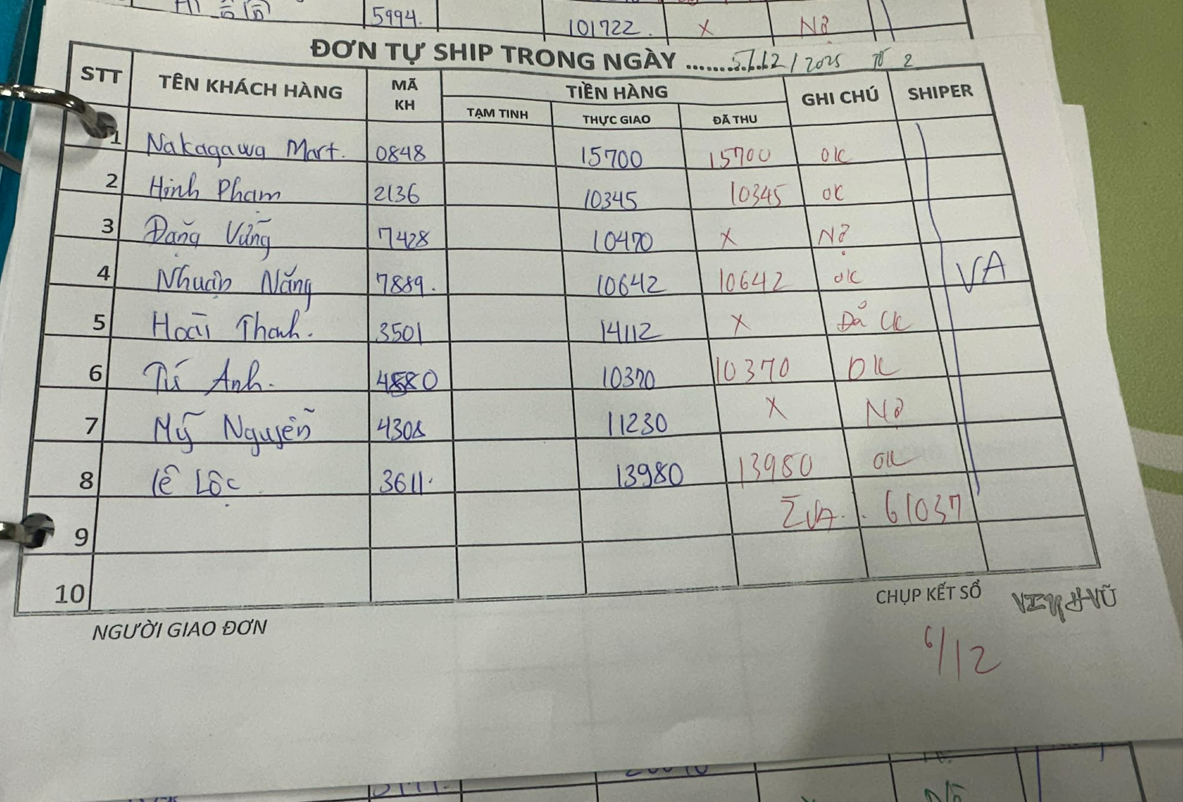 5994. 101722. X Nợ
ĐƠN TỰ SHIP TRONG NGÀY ........5/12/2025 Tờ 2
STT TÊN KHÁCH HÀNG MÃ KH TIỀN HÀNG GHI CHÚ SHIPER
TẠM TINH THỰC GIAO ĐÃ THU
1 Nakagawa Mart. 0848 15700 15700 OK
2 Hinh Phạm 2136 10345 10345 OK
3 Đặng Vững 7428 10470 X Nợ
4 Nhuận Năng 7889. 10642 10642 OK VA
5 Hoài Thanh. 3501 14112 X Đã CK
6 Tú Anh. 4880 10370 10370 OK
7 Mỹ Nguyễn 4308 11230 X Nợ
8 Lê Lộc 3611. 13980 13980 OK
9 ΣVA. . 61037
10
NGƯỜI GIAO ĐƠN
CHỤP KẾT SỔ
VŨ
6/12